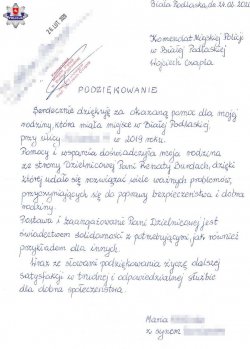 Biała Podlaska, dn 24.02.2021
Komendant Miejski Policji
w Białej Podlaskiej
Wojciech Czapla
26 LUT. 2021
PODZIĘKOWANIE
Serdecznie dziękuję za okazaną pomoc dla mojej
rodziny, która miała miejsce w Białej Podlaskiej
przy ulicy w 2019 roku.
Pomocy i wsparcia doświadczyła moja rodzina
ze strony Dzielnicowej Pani Renaty Burdach, dzięki
której udało się rozwiązać wiele ważnych problemów,
przyczyniających się do poprawy bezpieczeństwa i dobra
rodziny.
Postawa i zaangażowanie Pani Dzielnicowej jest
świadectwem solidarności z potrzebującymi, jak również
przykładem dla innych.
Wraz ze słowami podziękowania życzę dalszej
satysfakcji w trudnej i odpowiedzialnej służbie
dla dobra społeczeństwa.
Maria
z synem